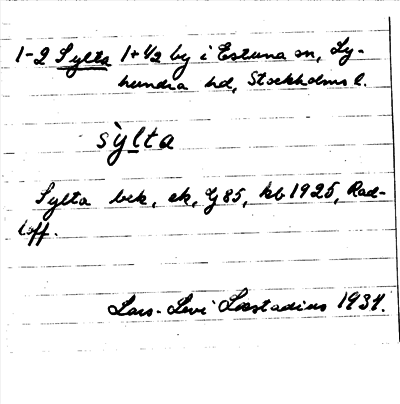 1-2 Sylta 1+1/2 by i Estuna sn, Ly-
hundra hd, Stockholms l.
sỳlta
Sylta bek, ek, G 85, kb 1925, Rad-
loff.
Lars-Levi Læstadius 1934.